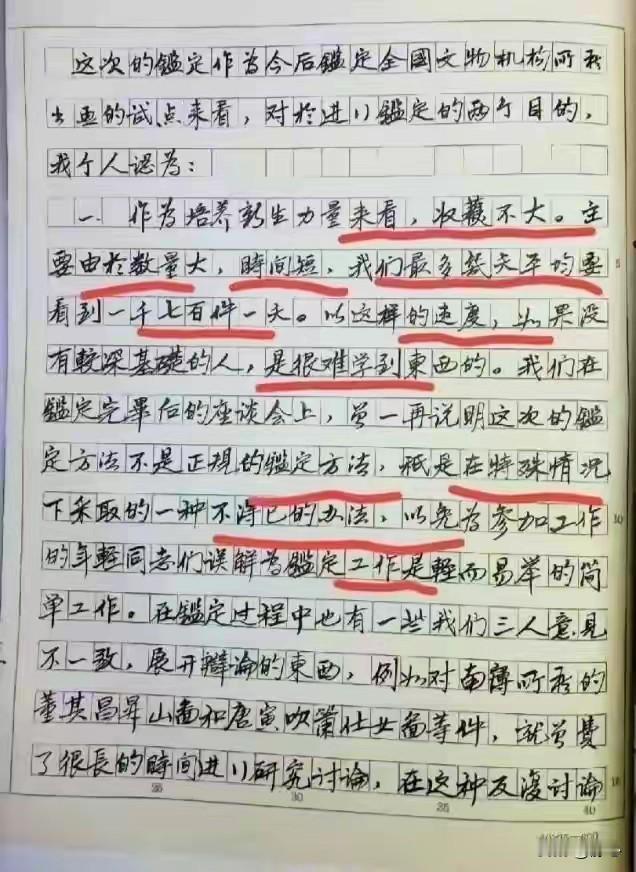 这次的鑑定作為今后鑑定全國文物机构所藏
书画的试点来看，对於进行鑑定的两个目的，
我个人認為：
一、作為培养新生力量来看，收穫不大。主
要由於数量大，時间短，我们最多几天平均要
看到一千七百件一天。以这样的速度，如果没
有較深基礎的人，是很难学到東西的。我们在
鑑定完畢后的座谈会上，曾一再说明这次的鑑
定方法不是正規的鑑定方法，祇是在特殊情况
下采取的一种不得已的办法，以免為参加工作
的年輕同志们误解為鑑定工作是輕而易举的简
单工作。在鑑定过程中也有一些我们三人意見
不一致，展开辯論的東西，例如对南博所藏的
董其昌昇山畵和唐寅吹簫仕女畵等件，就曾費
了很長的時间进行研究讨論，在这种反復讨論
5
10
15
25
30
35
40